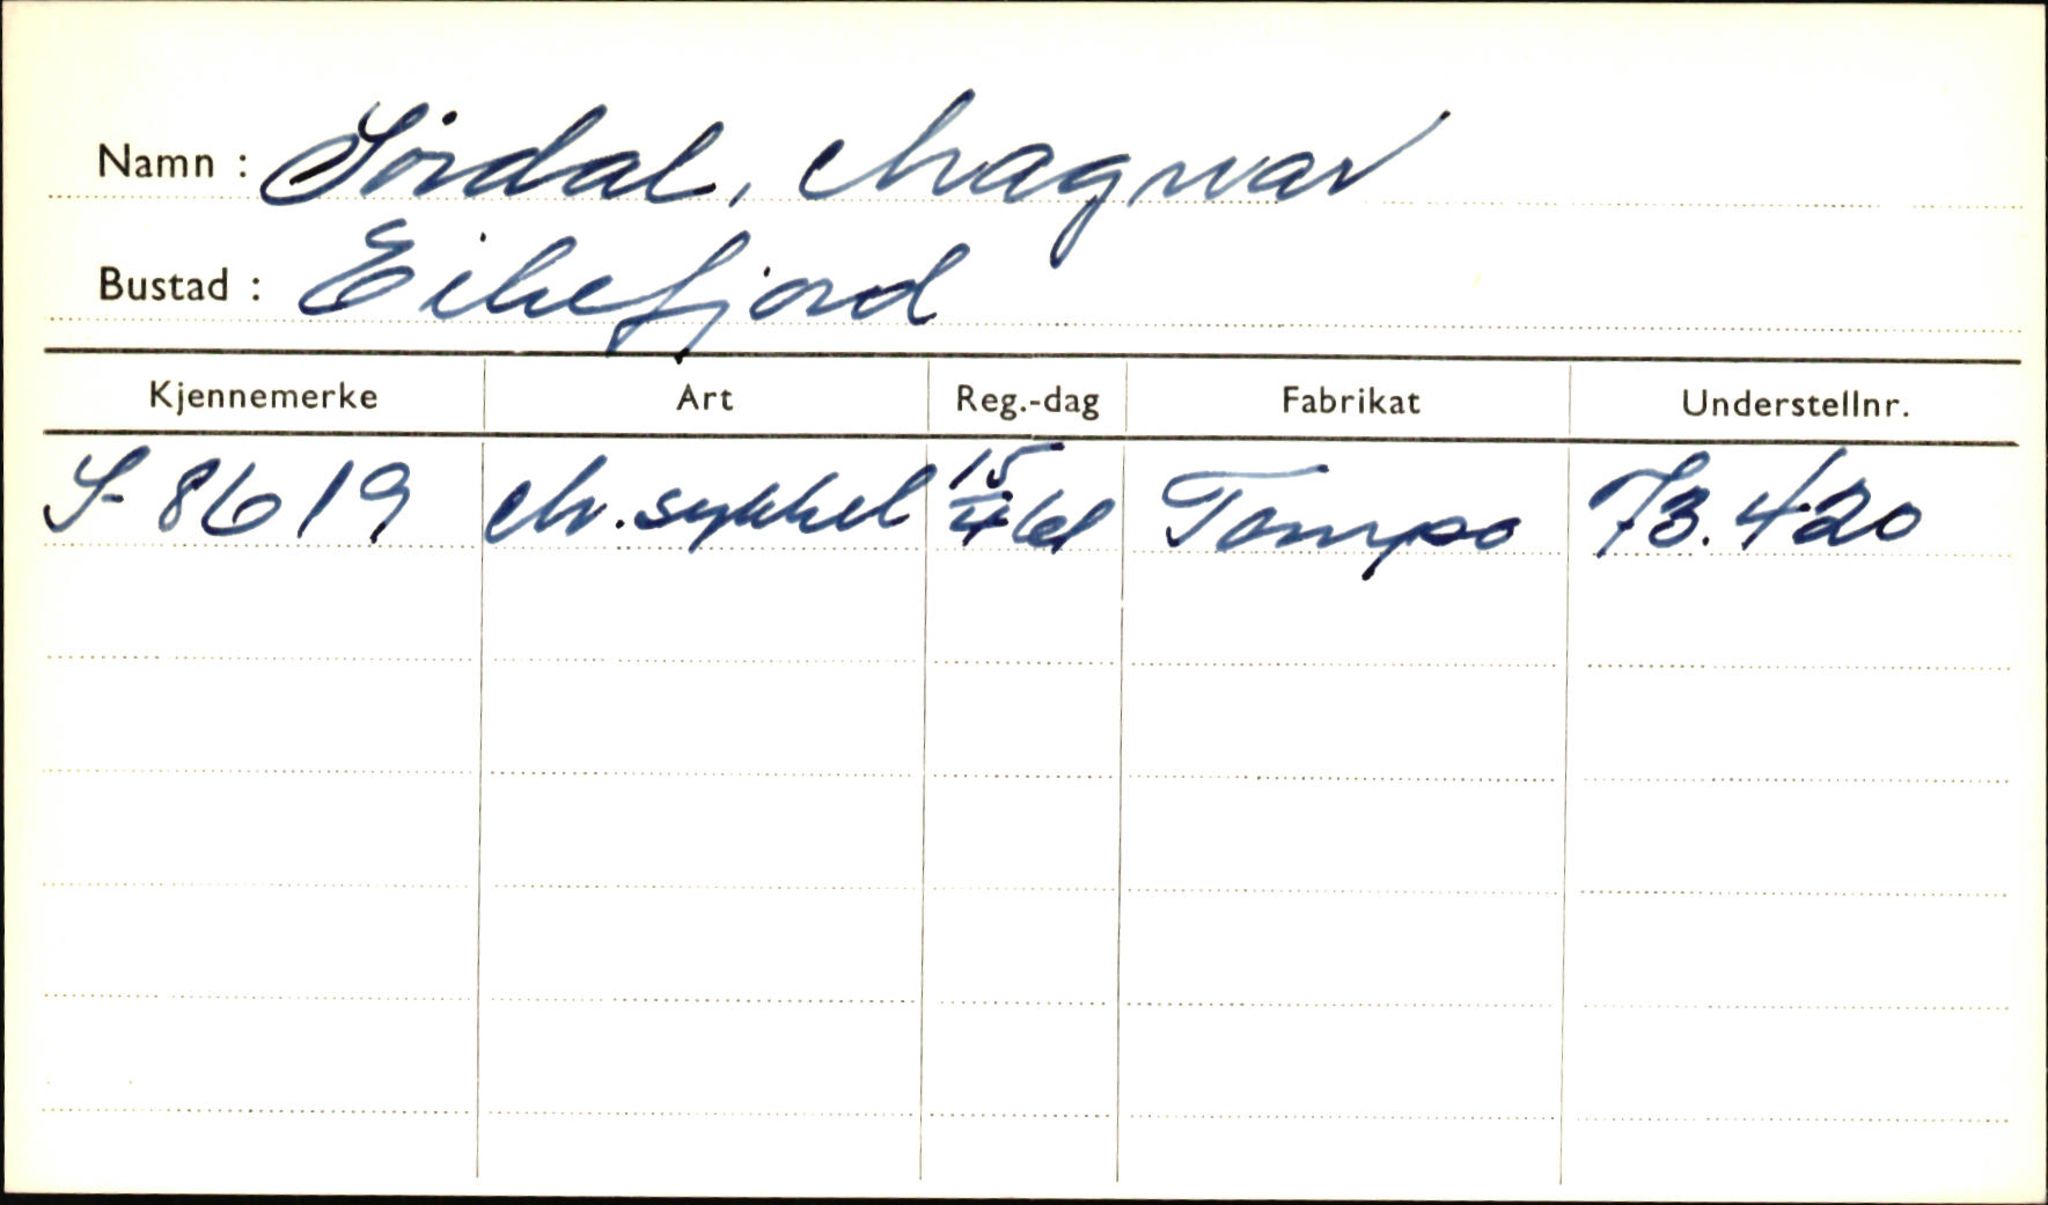 Namn : Sördal, Magnar
Bustad : Eikefjord
Kjennemerke Art Reg.-dag Fabrikat Understellnr.
S-8619 M.sykkel 15/4 61 Tempo 73.420